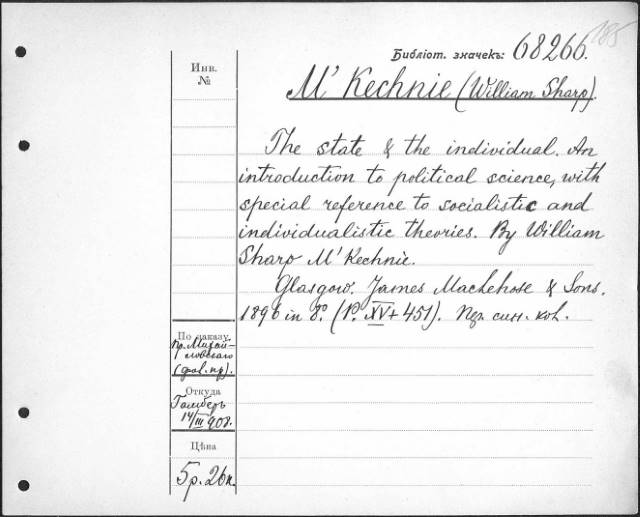 185
Библіот. значекъ: 68266.
Инв.
№
M' Kechnie (William Sharp).
The state & the individual. An
introduction to political science, with
special reference to socialistic and
individualistic theories. By William
Sharp M' Kechnie.
Glasgow. James Maclehose & Sons.
1896 in 8°. (P. XV+451). син. кол.
По заказу.
пр. Михай-
ловскаго
Откуда
14/III 908.
Цѣна
5 р. 26 к.